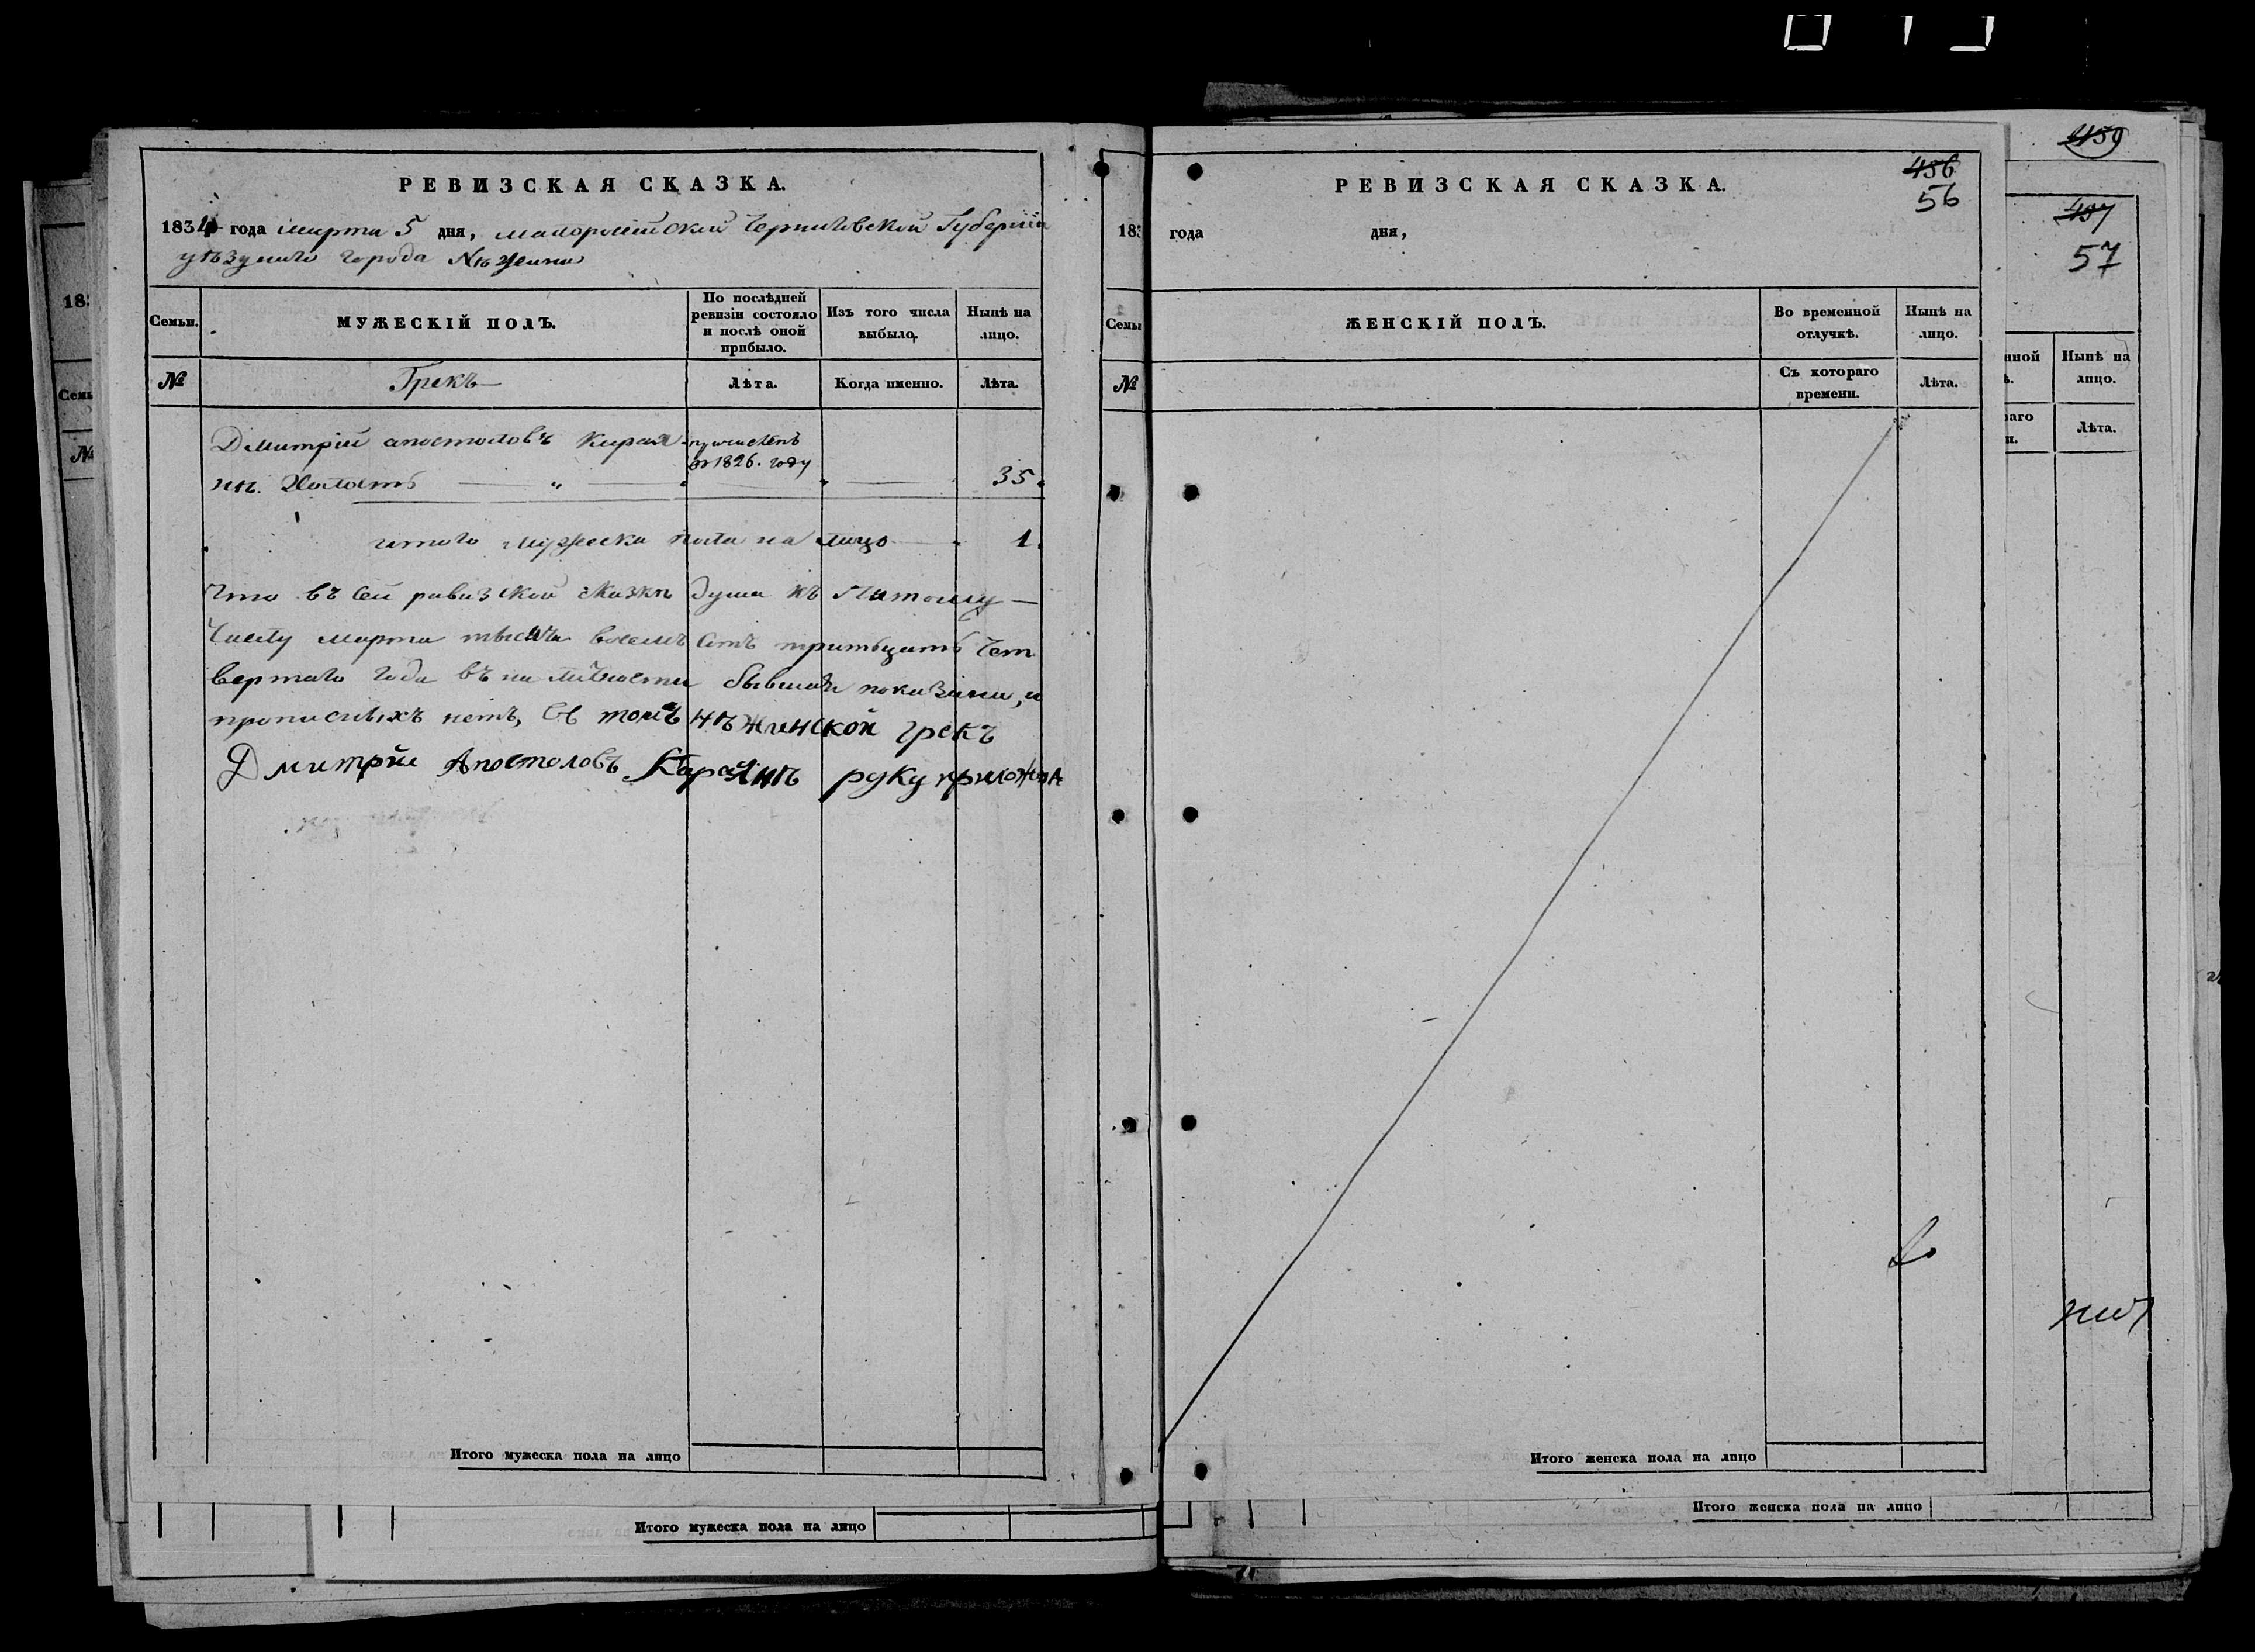 РЕВИЗСКАЯ СКАЗКА.
1834 года марта 5 дня, малороссийской Черниговской Губернии
уѣзднаго города Нѣжина
Семьи.
МУЖЕСКІЙ ПОЛЪ.
По послѣдней ревизіи состояло и послѣ оной прибыло.
Изъ того числа выбыло,
Нынѣ на лицо.
№
Грекъ
Лѣта.
Когда именно.
Лѣта.
Дмитрій апостоловъ Карая-
причисленъ
въ 1826. году
нѣ. Холостъ 35.
итого мужеска пола на лицо 1.
Что въ сей ревизской сказкѣ душа къ пятому
числу марта тысяча восемь сотъ тритьцать чет
вертаго года въ на личности бывшая показана, и
прописныхъ нетъ, въ томъ нѣженской грекъ
Дмитрій Апостоловъ Караянъ руку приложилъ
Итого мужеска пола на лицо
Итого мужеска пола на лицо
РЕВИЗСКАЯ СКАЗКА.
456
56
183 года дня,
Семьи
ЖЕНСКІЙ ПОЛЪ.
Во временной отлучкѣ.
Нынѣ на лицо.
№
Съ котораго времени.
Лѣта.
Итого женска пола на лицо
457
57
Нынѣ на лицо.
Лѣта.
Итого женска пола на лицо